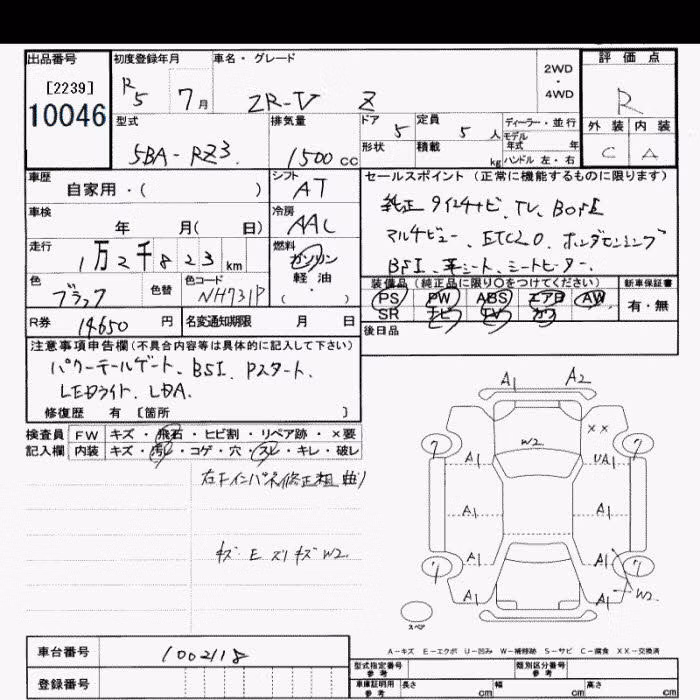 出品番号
[2239]
10046
初度登録年月
R5 7月
車名・グレード
ZR-V Z
2WD
・
4WD
評価点
R
外装 内装
C A
型式
5BA-RZ3
排気量
1500cc
ドア 5
定員 5人
形状
積載 kg
ディーラー・並行
モデル
年式 年
ハンドル 左・右
車歴
自家用・( )
シフト
AT
車検
年 月( 日)
冷房
AAC
走行
1万2千823km
燃料
ガソリン
軽油
( ・ )
色
ブラック
色替
色コード
NH731P
R券 14650円
名変通知期限 月 日
セールスポイント(正常に機能するものに限ります)
純正9インチナビ、TV、BカメE
マルチビュー、ETC2.0、ホンダセンシング
BSI、革シート、シートヒーター、
装備品(純正品に限り○をつけてください)
PS PW ABS エアB AW
SR ナビ TV カワ
新車保証書
有・無
後日品
注意事項申告欄(不具合内容等は具体的に記入して下さい)
パワーテールゲート、BSI、Pスタート、
LEDライト、LDA、
修復歴 有 [箇所 ]
検査員
記入欄
FW キズ・飛石・ヒビ割・リペア跡・×要
内装 キズ・汚レ・コゲ・穴・スレ・キレ・破レ
右Fインパネ修正粗 曲り
キズ E ズリキズ W2
A1 A2
W2
××
7 7
A1 UA1
A1 A1
A1 A1
7 7
A1 A1
W2
スペア
A-キズ E-エクボ U-凹み W-補修跡 S-サビ C-腐食 XX-交換済
車台番号
1002118
登録番号
型式指定番号
参考
類別区分番号
参考
車庫証明用
参考
長さ cm
幅 cm
高さ cm